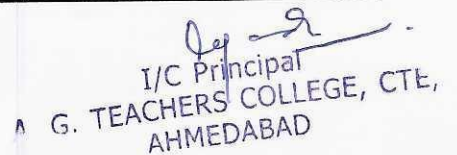 I/C Principal
G. TEACHERS COLLEGE, CTE,
AHMEDABAD